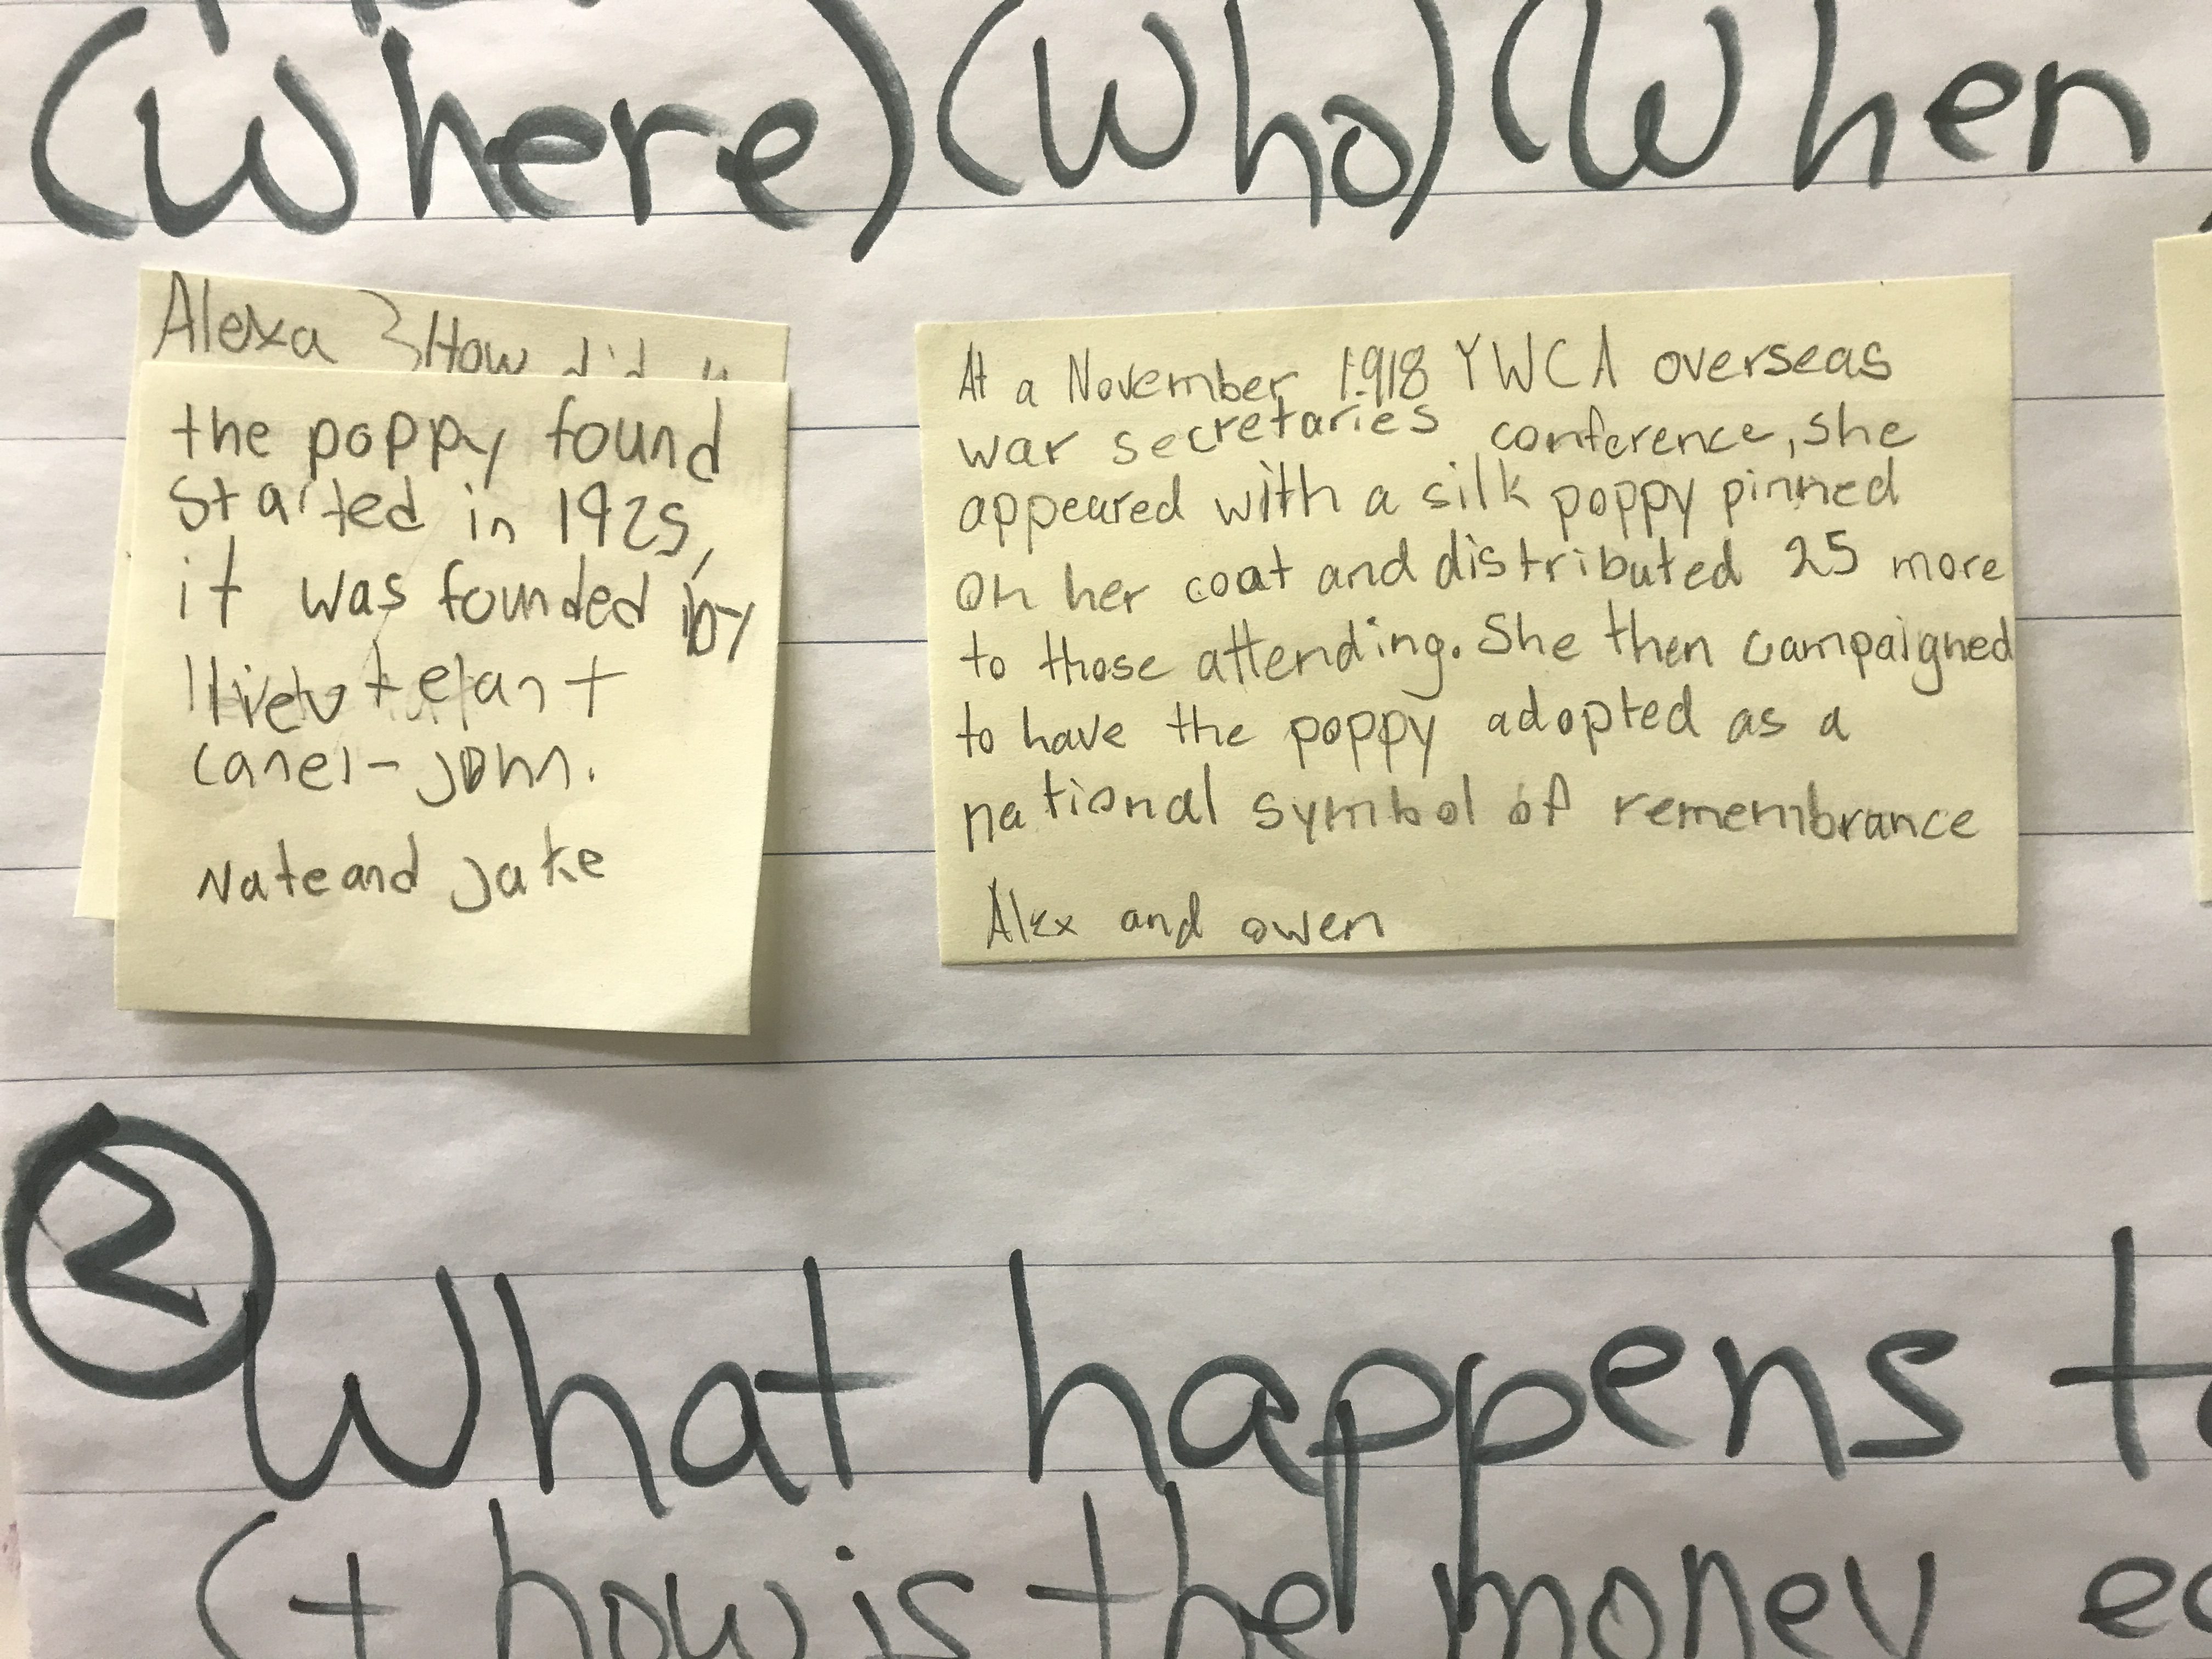 (Where) (Who) (When
Alexa How did
the poppy found
started in 1925,
it was founded by
canel-john.
Nate and Jake
At a November 1918 YWCA overseas
war secretaries conference, she
appeared with a silk poppy pinned
on her coat and distributed 25 more
to those attending. She then campaigned
to have the poppy adopted as a
national symbol of remembrance
Alex and owen
2 What happens
(+ how is the money